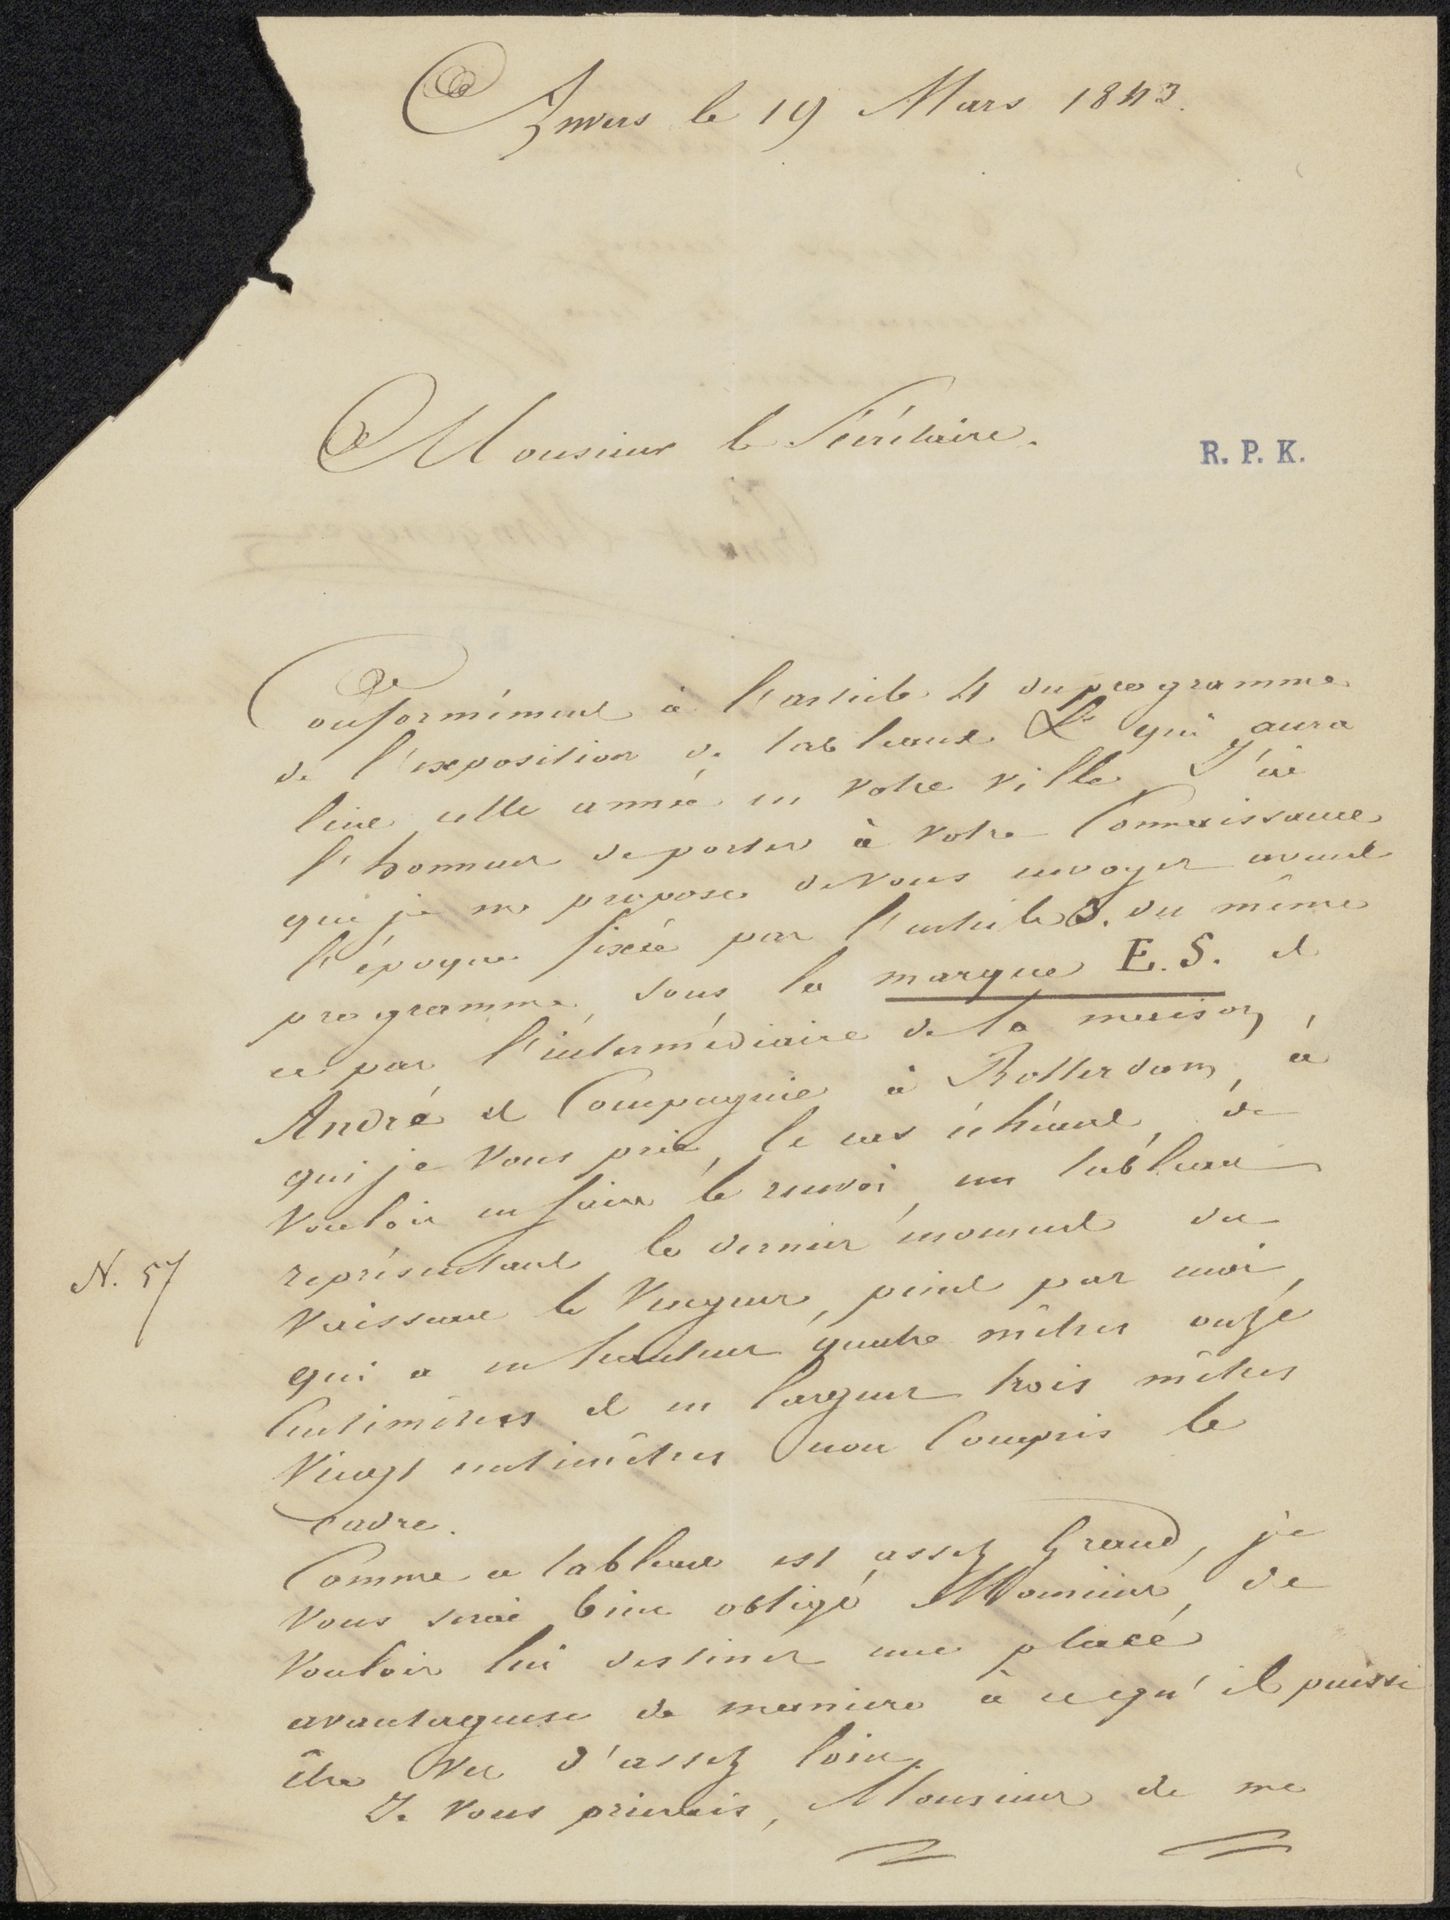 Anvers le 19 Mars 1843.
Monsieur le Sécrétaire.
R. P. K.
Conformément à l'article 4 du programme
de l'exposition de tableaux &c qui aura
lieu cette année en votre ville, J'ai
l'honneur de porter à votre Connaissance
que je me propose de vous envoyer avant
l'époque fixée par l'article 3. du même
programme, sous la marque E. S. et
ce par l'intermédiaire de la maison,
André et Compagnie à Rotterdam, à
qui je vous prie, le cas échéant, de
vouloir en faire le renvoi, un tableau
représentant le dernier moment du
N. 57
Vaisseau le Vengeur, peint par moi,
qui a en hauteur quatre mètres onze
Centimètres et en largeur trois mètres
Vingt centimètres non Compris le
Cadre.
Comme ce tableau est assez Grand, je
vous serai bien obligé Monsieur, de
vouloir lui destiner une place
avantageuse de maniere à ce qu'il puisse
être vu d'assez loin.
Je vous prierais, Monsieur de me